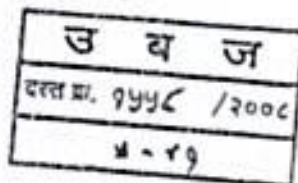 उ व ज
दस्त क्र. १५५८ /२००८